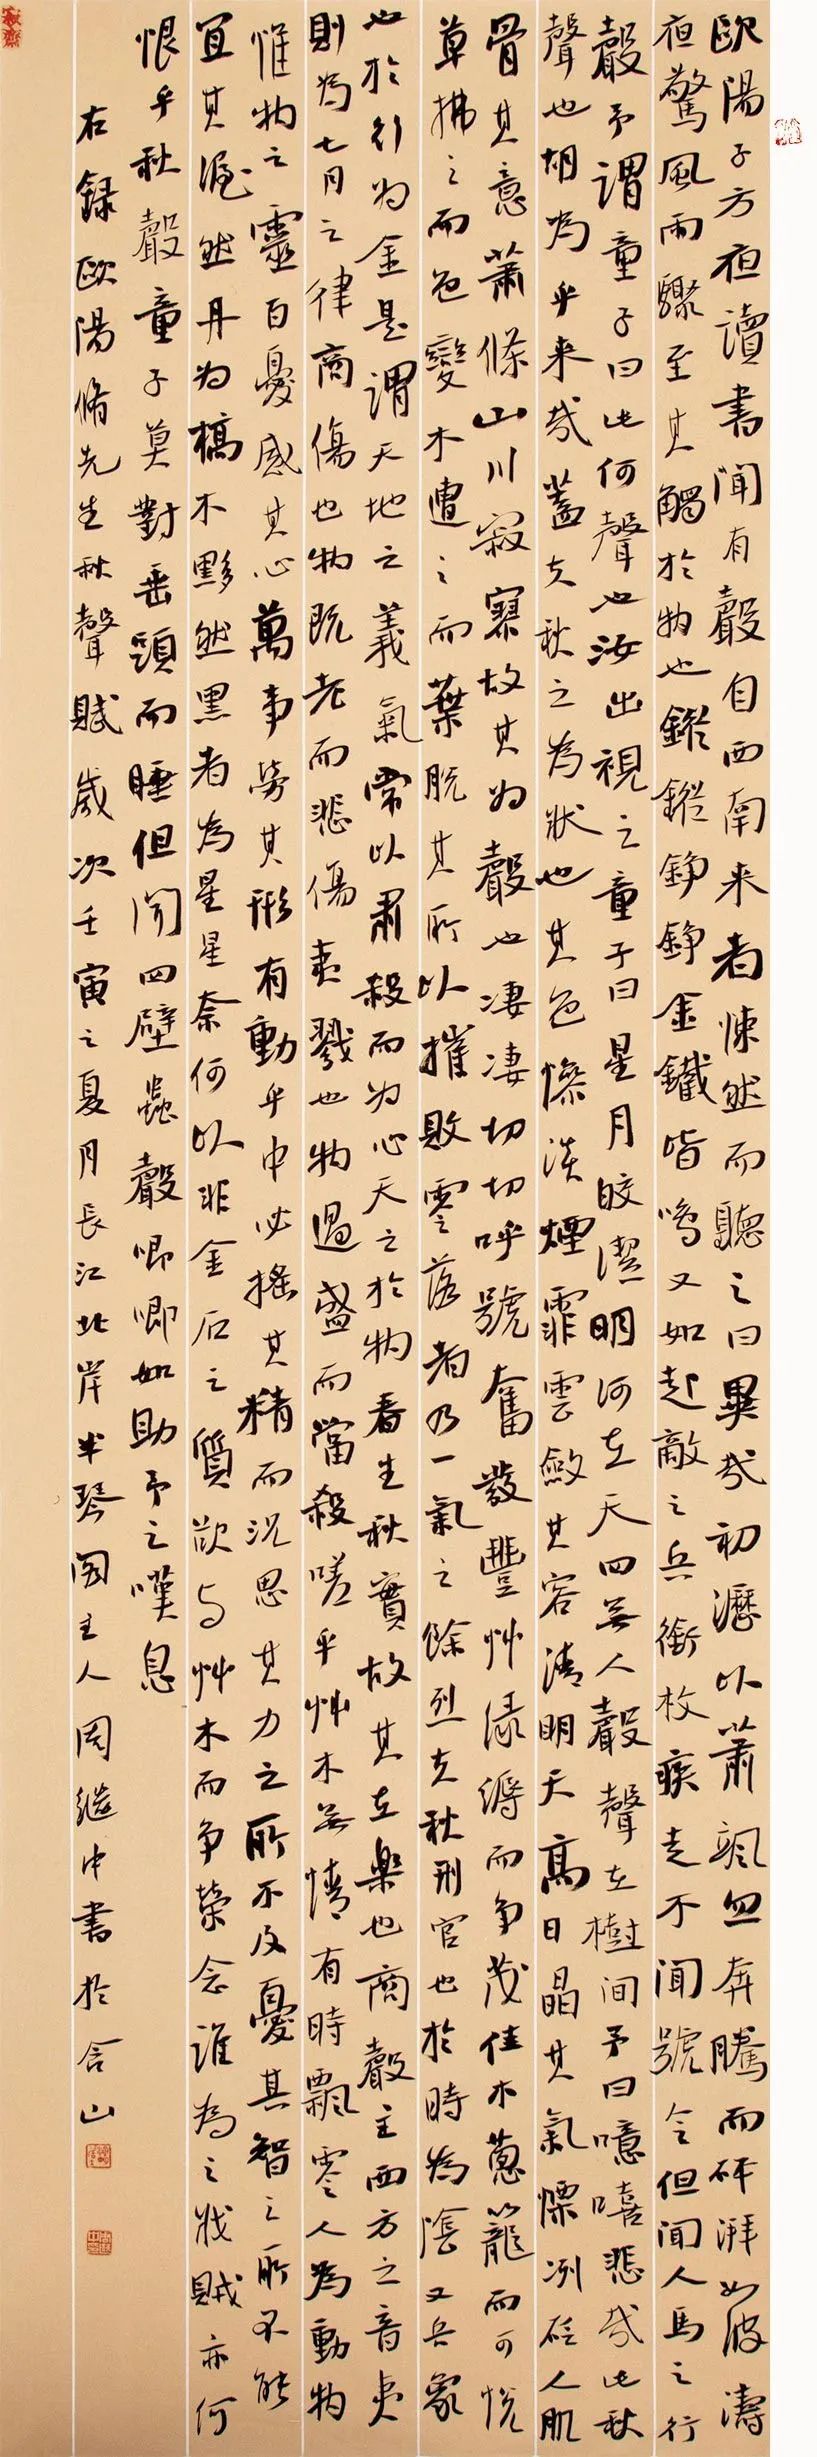 歐陽子方夜讀書聞有聲自西南来者悚然而聽之曰異哉初瀝以蕭颯忽奔騰而砰湃如波濤
夜驚風雨驟至其觸於物也鏦鏦錚錚金鐵皆鳴又如赴敵之兵銜枚疾走不聞號令但聞人馬之行
聲予謂童子曰此何聲也汝出視之童子曰星月皎潔明河在天四無人聲聲在樹间予曰噫嘻悲哉此秋
聲也胡為乎来哉蓋夫秋之為狀也其色慘淡煙霏雲斂其容清明天高日晶其氣慄冽砭人肌
骨其意蕭條山川寂寥故其为聲也凄凄切切呼號奮發豐艸綠縟而争茂佳木蔥籠而可悦
草拂之而色變木遭之而葉脱其所以摧敗零落者乃一氣之餘烈夫秋刑官也於時為陰又兵象
也於行为金是謂天地之義氣常以肅殺而为心天之於物春生秋實故其在樂也商聲主西方之音夷
則為七月之律商傷也物既老而悲傷夷戮也物過盛而當殺嗟乎艸木無情有時飄零人為動物
惟物之靈百憂感其心萬事勞其形有動乎中必搖其精而況思其力之所不及憂其智之所不能
宜其渥然丹为槁木黟然黑者為星星奈何以非金石之質欲与艸木而争榮念誰為之戕賊亦何
恨乎秋聲童子莫對垂頭而睡但聞四壁蟲聲唧唧如助予之嘆息
右録歐陽脩先生秋聲賦歲次壬寅之夏月長江北岸半琴閣主人周繼中書於含山